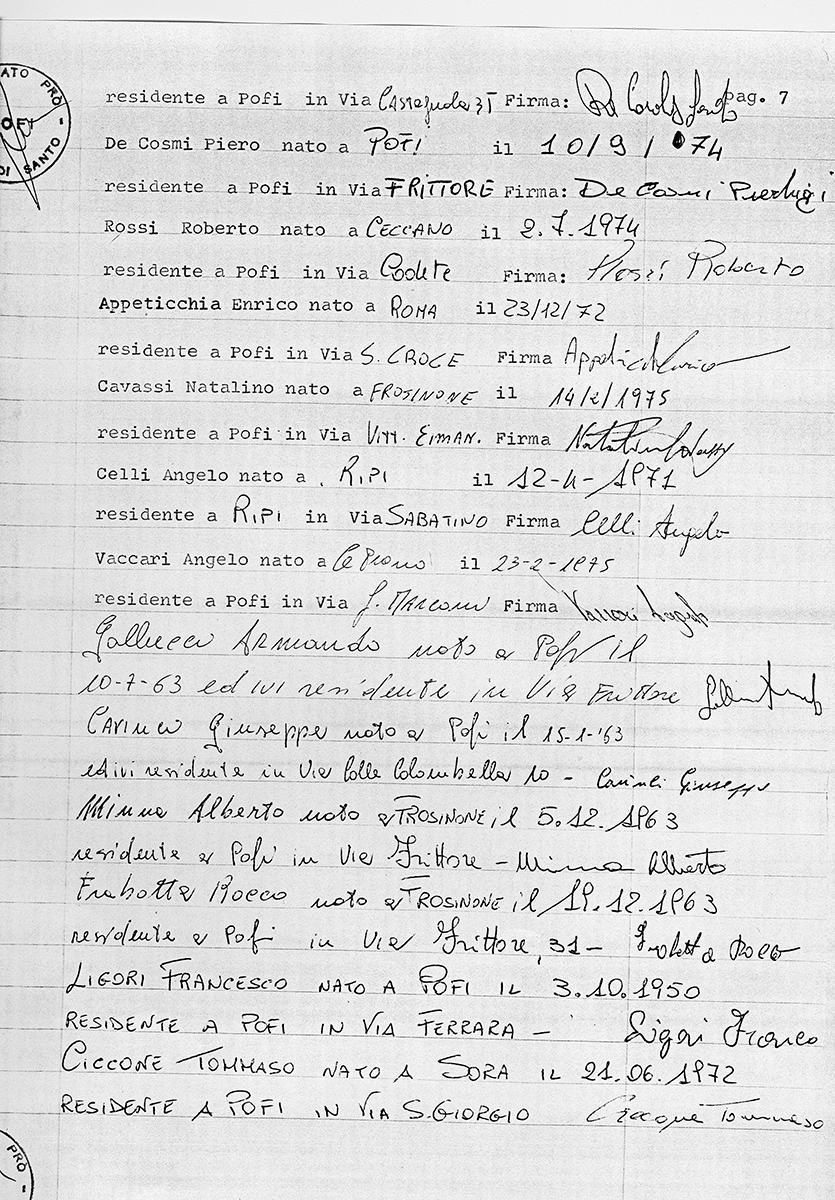 ATO PRO
OFI
DI SANTO
residente a Pofi in Via Firma: pag. 7
De Cosmi Piero nato a POFI il 10/9/ 74
residente a Pofi in Via FRITTORE Firma: De Cosmi Pierluigi
Rossi Roberto nato a CECCANO il 2.7.1974
residente a Pofi in Via Firma: Rossi Roberto
Appeticchia Enrico nato a ROMA il 23/12/72
residente a Pofi in Via S. CROCE Firma
Cavassi Natalino nato a FROSINONE il 14/2/1975
residente a Pofi in Via VITT. Firma
Celli Angelo nato a RIPI il 12-4-1971
residente a RIPI in Via SABATINO Firma Celli Angelo
Vaccari Angelo nato a Ceprano il 23-2-1975
residente a Pofi in Via G. MARCONI Firma
Gallucci ARMANDO nato a Pofi il
10-7-63 ed ivi residente in Via Frittore
CARINCI Giuseppe nato a Pofi il 15-1-'63
ed ivi residente in Via Colle Colombella 10 - Carinci Giuseppe
Minna Alberto nato a FROSINONE il 5.12.1963
residente a Pofi in Via Frittore - Minna Alberto
Frabotta Rocco nato a FROSINONE il 19.12.1963
residente a Pofi in Via Frittore, 31 - Frabotta Rocco
LIGORI FRANCESCO NATO A POFI IL 3.10.1950
RESIDENTE A POFI IN VIA FERRARA - Ligori Franco
CICCONE TOMMASO NATO A SORA IL 21.06.1972
RESIDENTE A POFI IN VIA S.GIORGIO Ciccone Tommaso
PRO -